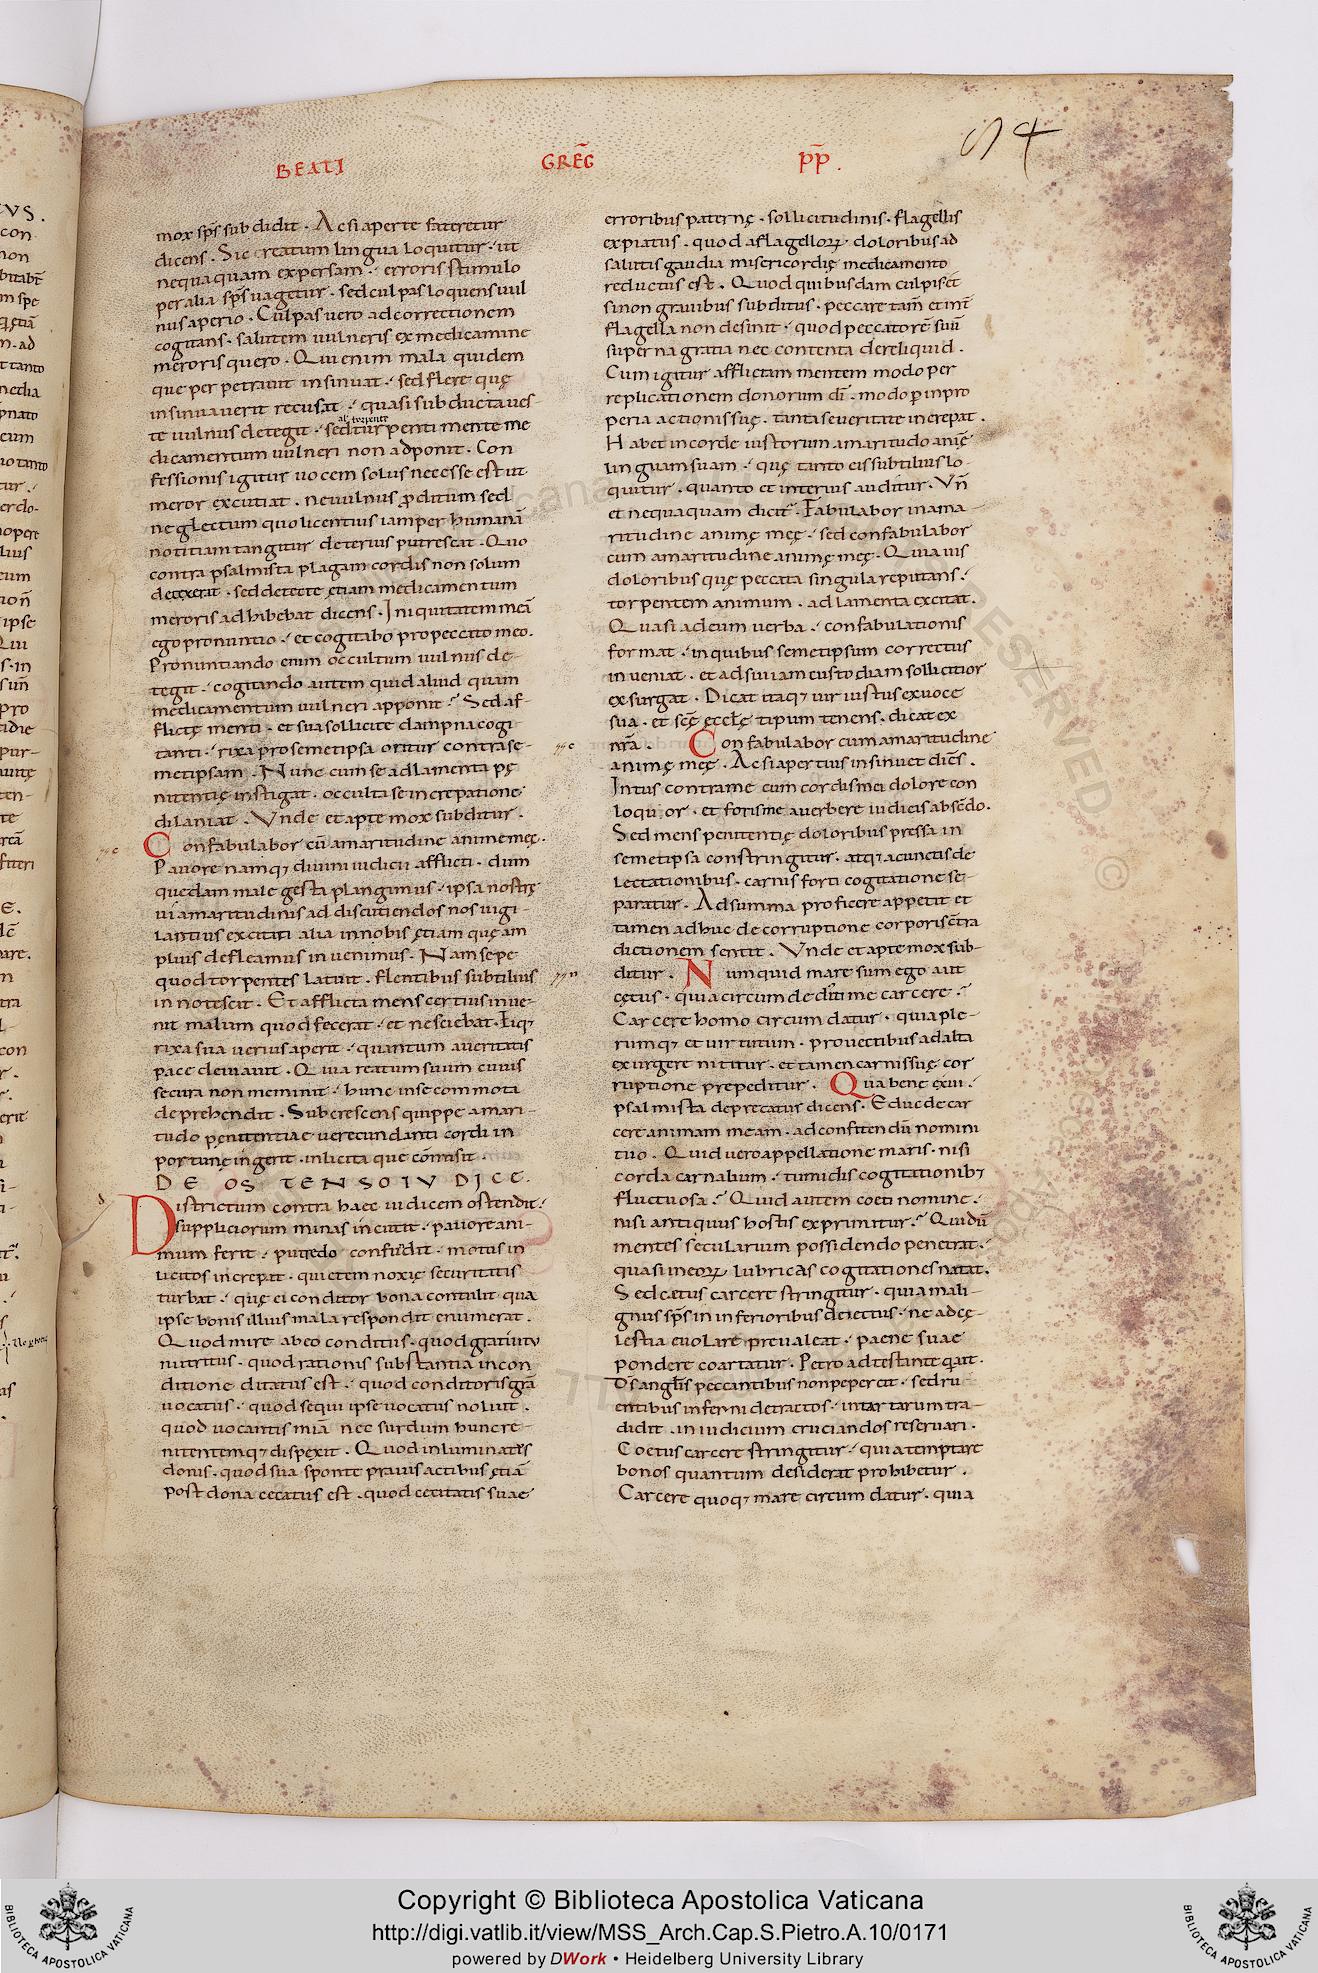 BEATI GREḠ P̄P̄.
mox sp̄s subdidit. Acsi aperte fateretur
dicens. Sic reatum lingua loquitur. ut
nequaquam expersam. erroris stimulo
per alia sp̄s uagetur. sed culpas loquens uul
nus aperio. Culpas uero ad correctionem
cogitans. salutem uulneris ex medicamine
meroris quero. Qui enim mala quidem
que perpetrauit insinuat. sed flere quę
insinuauerit recusat. quasi subducta ues
al' torpente
te uulnus detegit. sed turpenti mente me
dicamentum uulneri non adponit. Con
fessionis igitur uocem solus necesse est ut
meror excutiat. ne uulnus proditum sed
neglectum quo licentius iam per humanā
notitiam tangitur deterius putrescat. Quo
contra psalmista plagam cordis non solum
detexerat. sed detecte ętiam medicamentum
meroris adhibebat dicens. Iniquitatem meā
ego pronuntio. et cogitabo pro peccato meo.
Pronuntiando enim occultum uulnus de-
tegit. cogitando autem quid aliud quam
medicamentum uulneri apponit. Sed af-
flictę menti. et sua sollicite dampna cogi
tanti. rixa pro semetipsa oritur contra se-
metipsam. Nunc cum se ad lamenta pę
nitentię instigat. occulta se increpatione
dilaniat. Vnde et apte mox subditur.
Confabulabor cū amaritudine anime męę.
Pauore namq; diuini iudicii afflicti. dum
quedam male gesta plangimus. ipsa nostrę
ui amaritudinis ad discutiendos nos uigi-
lantius excitati alia in nobis ętiam quę am
plius defleamus inuenimus. Nam sepe
quod torpentes latuit. flentibus subtilius
innotescit. Et afflicta mens certius inue-
nit malum quod fecerat. et nesciebat. Eiq;
rixa sua uerius aperit. quantum a ueritatis
pace deuiauit. Quia reatum suum cuius
secura non meminit. hunc in se commota
deprehendit. Subcrescens quippe amari-
tudo pęnitentiae uerecundanti cordi in
portunę ingerit. inlicita que cōmisit.
DE OSTENSO IVDICE.
Districtum contra haec iudicem ostendit.
suppliciorum minas incutit. pauore ani-
mum ferit. putredo confundit. motus in
licitos increpat. quietem noxię securitatis
turbat. quę ei conditor bona contulit qua
ipse bonis illius mala respondit enumerat.
Quod mire ab eo conditus. quod gratuitu
nutritus. quod rationis substantia in con
ditione ditatus est. quod conditoris grā
uocatus. quod sequi ipse uocatus noluit.
quod uocantis mīa nec surdum hunc re-
nitentemq; dispexit. Quod inluminatus
donis. quod sua sponte prauis actibus ętiā
post dona cecatus est. quod cecitatis suae
erroribus paternę. sollicitudinis. flagellis
expiatus. quod a flagellorum. doloribus ad
salutis gaudia misericordię medicamento
reductus est. Quod quibusdam culpis et
si non grauibus subditus. peccare tam̄ et int̄
flagella non desinit. quod peccatorē suū
superna gratia nec contenta dereliquid.
Cum igitur afflictam mentem modo per
replicationem donorum dī. modo p inpro
peria actionis suę. tanta seueritate increpat.
Habet in corde iustorum amaritudo anię
linguam suam. quę tanto eis subtilius lo-
quitur. quanto et interius auditur. Vn̄
et nequaquam dicit. Fabulabor in ama-
ritudine animę męę. sed confabulabor
cum amaritudine animę męę. Quia uis
doloribus quę peccata singula reputans.
torpentem animum. ad lamenta excitat.
Quasi ad eum uerba. confabulationis
format. in quibus semetipsum correctus
inueniat. et ad sui iam custodiam sollicitior
exsurgat. Dicat itaq; uir iustus ex uoce
sua. et scę ęcclę tipum tenens. dicat ex
nr̄a. Confabulabor cum amaritudine
animę męę. Acsi apertius insinuet dicēs.
Intus contra me cum cordis mei dolore con
loquor. et foris me a uerbere iudicis abscōdo.
Sed mens penitentię doloribus pressa in
semetipsa constringitur. atq; a cunctis de
lectationibus. carnis forti cogitatione se-
paratur. Ad summa proficere appetit et
tamen adhuc de corruptione corporis cōtra
dictionem sentit. Vnde et apte mox sub-
ditur. Numquid mare sum ego aut
cętus. quia circumdediti me carcere.
Carcere homo circumdatur. quia ple-
rumq; et uirtutum. prouectibus ad alta
exurgere nititur. et tamen carnis suę cor
ruptione prepeditur. Qua bene exui.
psalmista deprecatur dicens. Educ de car
cere animam meam. ad confitendū nomini
tuo. Quid uero appellatione maris. nisi
corda carnalium. tumidis cogitationib;
fluctuosa. Quid autem coeti nomine.
nisi antiquus hostis exprimitur. Qui dū
mentes secularium possidendo penetrat.
quasi in eorum lubricas cogitationes natat.
Sed cętus carcere stringitur. quia mali-
gnus sp̄s in inferioribus deiectus. ne ad cę-
lestia euolare preualeat. paene suae
pondere coartatur. Petro adtestante q ait.
D̄s angl̄is peccantibus non pepercit. sed ru
entibus inferni detractos. in tartarum tra-
didit. in iudicium cruciandos reseruari.
Coetus carcere stringitur. quia temptare
bonos quantum desiderat prohibetur.
Carcere quoq; mare circumdatur. quia
Copyright © Biblioteca Apostolica Vaticana
http://digi.vatlib.it/view/MSS_Arch.Cap.S.Pietro.A.10/0171
powered by DWork • Heidelberg University Library
BIBLIOTECA APOSTOLICA VATICANA
BIBLIOTECA APOSTOLICA VATICANA